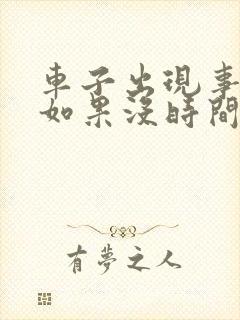 車子出現事
如果沒時間
有夢之人